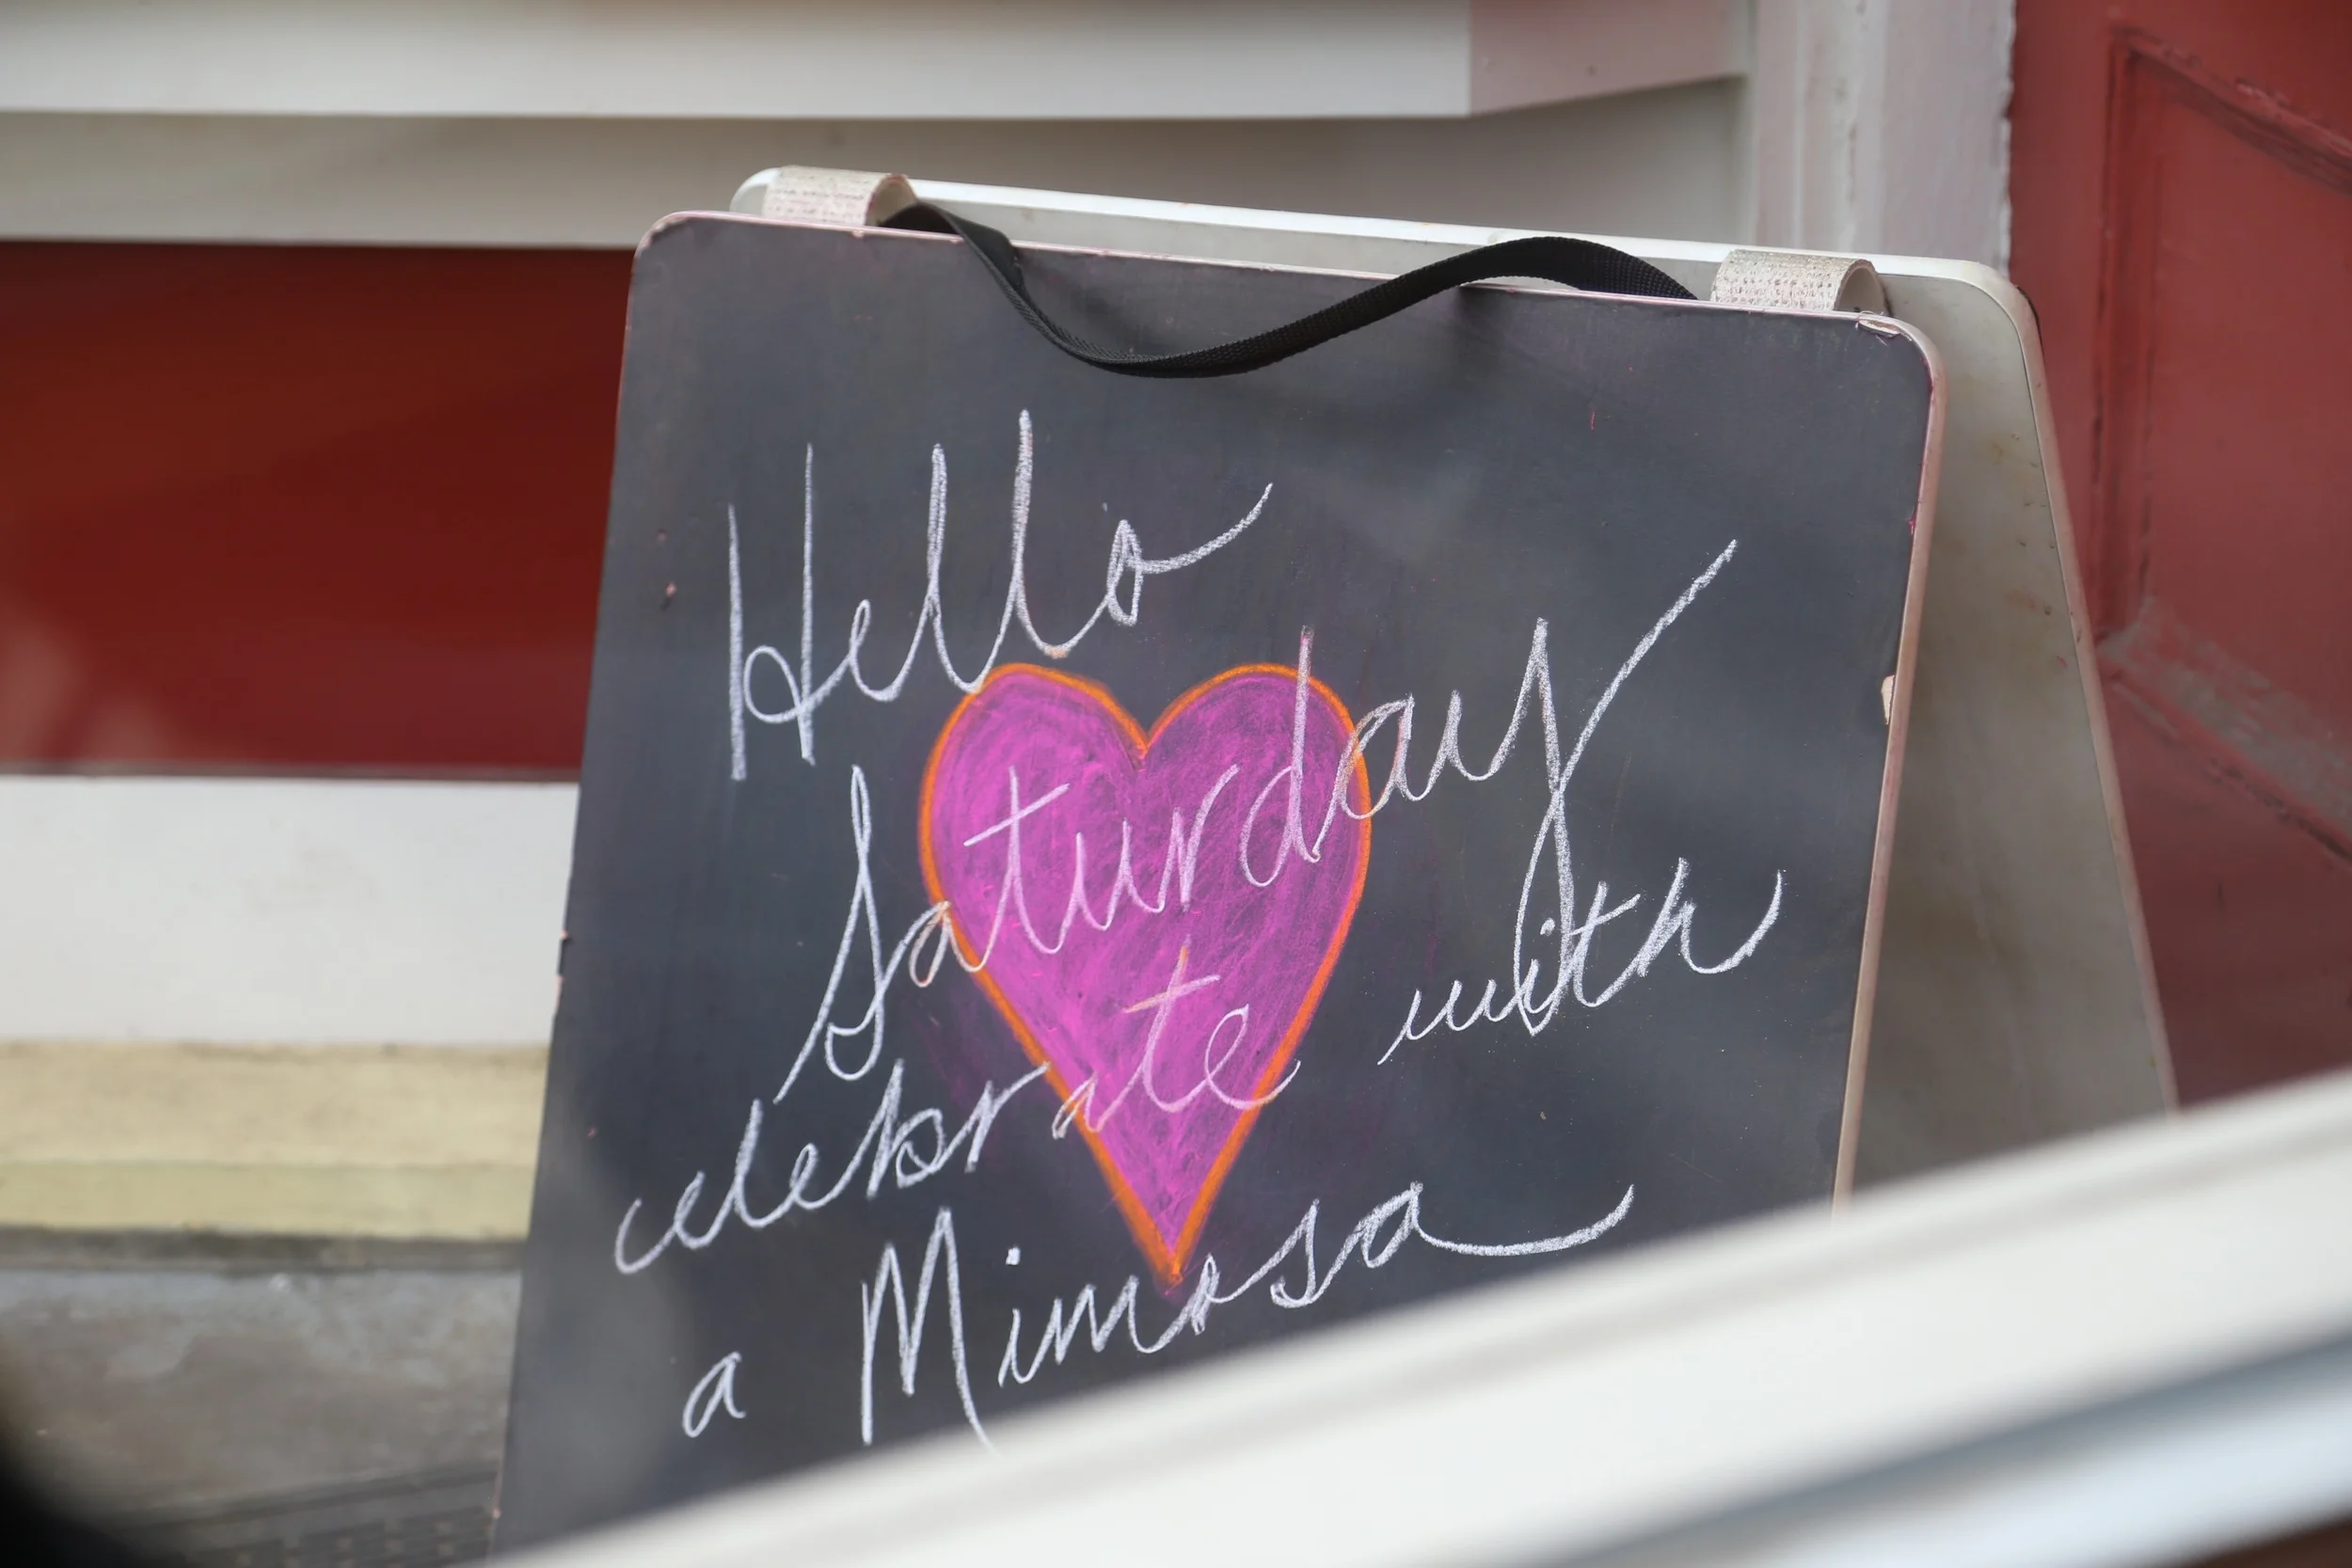 Hello
Saturday
celebrate with
a Mimosa